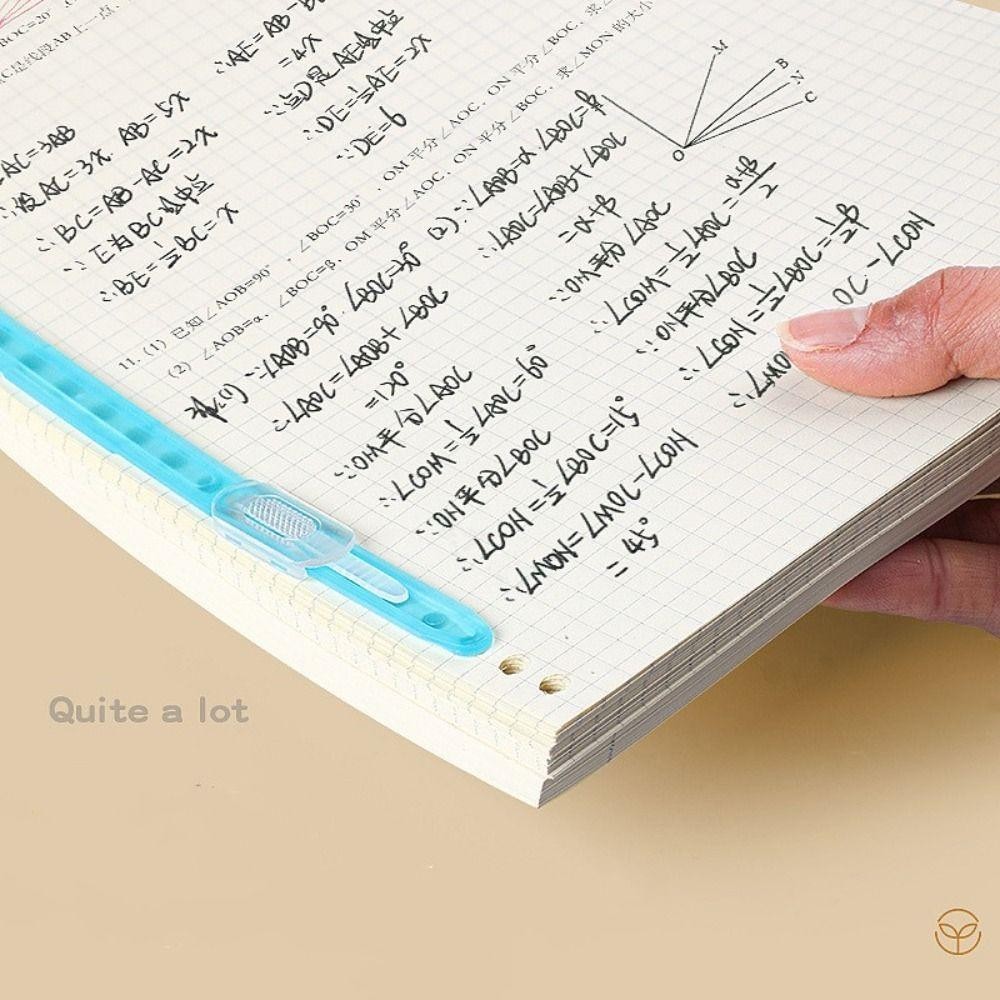 BOC=20°
C是线段AB上一点，
AC=3AB
∴设AC=3x. AB=5x
∴BC=AB-AC=2x
∵E为BC的中点
∴BE=½BC=x
∴AE=AB-B
=4x
∵点D是AE的中点
∴DE=½AE=2x
∵DE=6
11. (1) 已知∠AOB=90°，∠BOC=30°，OM平分∠AOC，ON平分∠BOC，求∠
(2) ∠AOB=α，∠BOC=β，OM平分∠AOC，ON平分∠BOC，求∠MON的大小
M
B
N
C
O
解:(1) ∵∠AOB=90°. ∠BOC=30°
∴∠AOC=∠AOB+∠BOC
=120°
∵OM平分∠AOC
∴∠COM=½∠AOC=60°
∵ON平分∠BOC
∴∠CON=½∠BOC=15°
∴∠MON=∠MOC-∠CON
=45°
(2) ∵∠AOB=α ∠BOC=β
∴∠AOC=∠AOB+∠BOC
=α+β
∵OM平分∠AOC
∴∠COM=½∠AOC=α+β/2
∵ON平分∠BOC
∴∠CON=½∠BOC=½β
∴∠MO OC-∠CON
Quite a lot